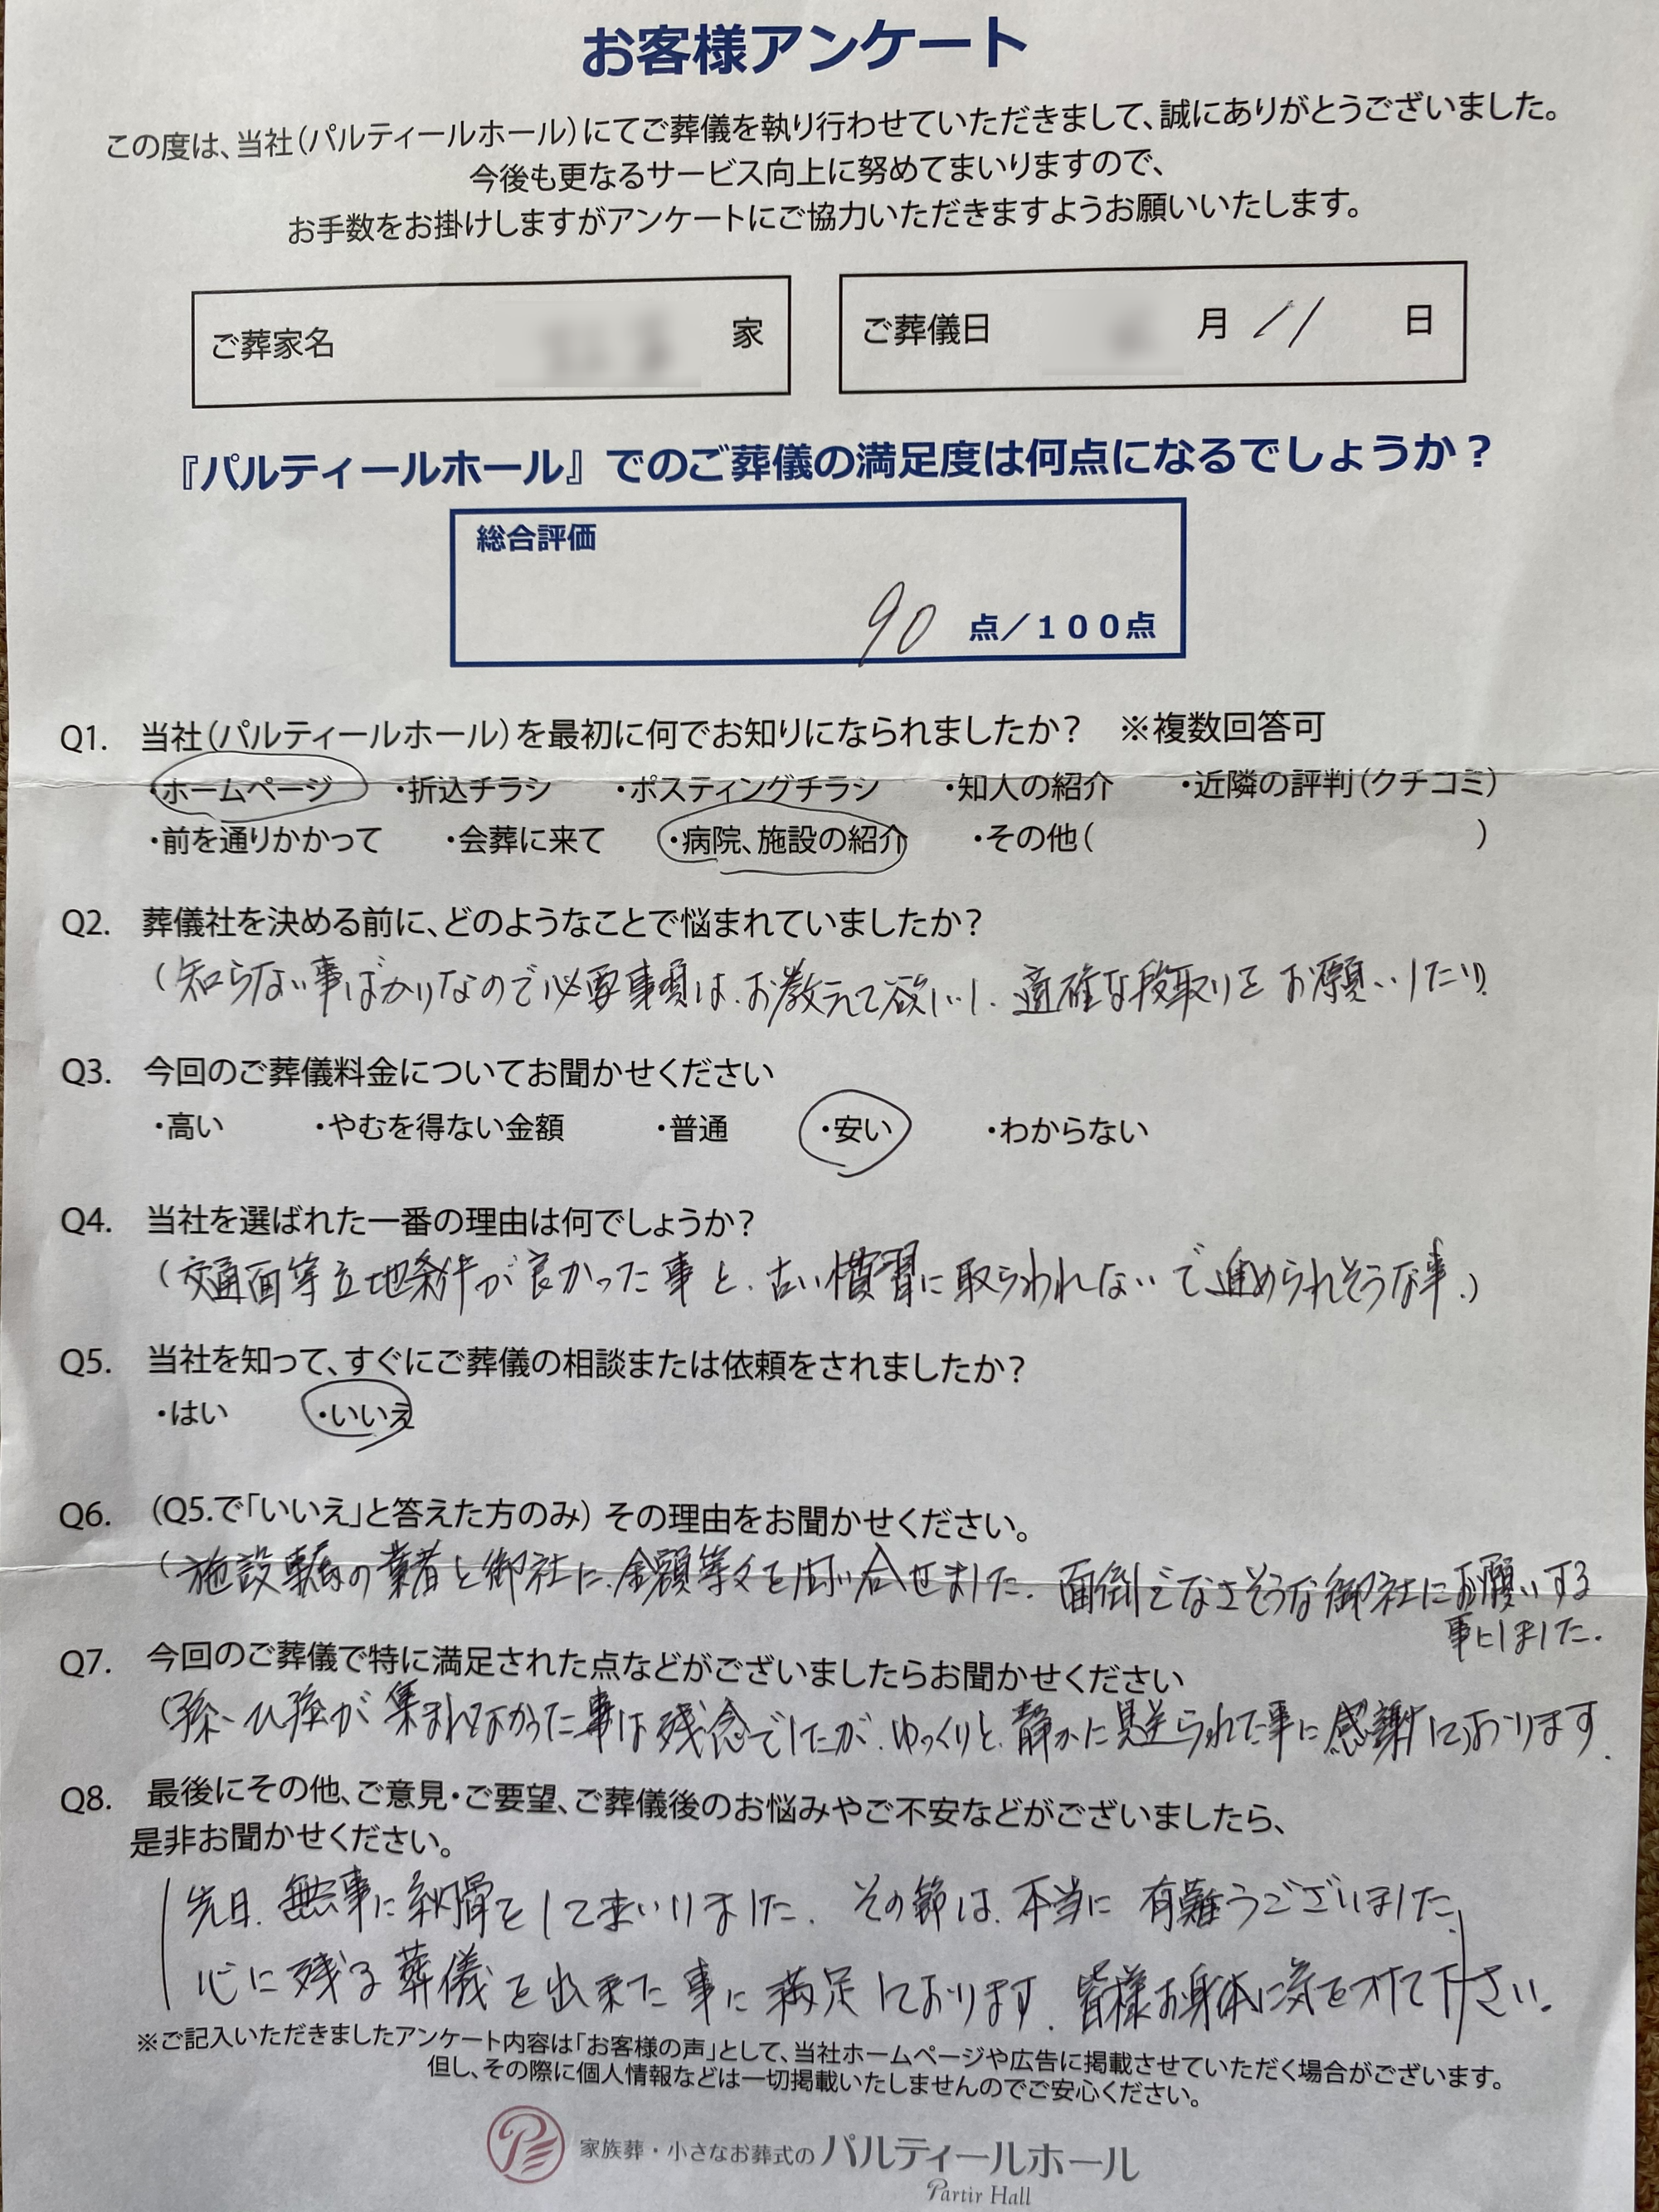 お客様アンケート
この度は、当社(パルティールホール)にてご葬儀を執り行わせていただきまして、誠にありがとうございました。
今後も更なるサービス向上に努めてまいりますので、
お手数をお掛けしますがアンケートにご協力いただきますようお願いいたします。
ご葬家名 家 ご葬儀日 月 11 日
『パルティールホール』でのご葬儀の満足度は何点になるでしょうか?
総合評価
90 点/100点
Q1. 当社(パルティールホール)を最初に何でお知りになられましたか? ※複数回答可
・ホームページ ・折込チラシ ・ポスティングチラシ ・知人の紹介 ・近隣の評判(クチコミ)
・前を通りかかって ・会葬に来て ・病院、施設の紹介 ・その他( )
Q2. 葬儀社を決める前に、どのようなことで悩まれていましたか?
(知らない事ばかりなので必要事項は、お教えて欲しいし、適確な段取りをお願いしたい)
Q3. 今回のご葬儀料金についてお聞かせください
・高い ・やむを得ない金額 ・普通 ・安い ・わからない
Q4. 当社を選ばれた一番の理由は何でしょうか?
(交通面等立地条件が良かった事と、古い慣習に取らわれないで進められそうな事。)
Q5. 当社を知って、すぐにご葬儀の相談または依頼をされましたか?
・はい ・いいえ
Q6. (Q5.で「いいえ」と答えた方のみ) その理由をお聞かせください。
(施設専属の業者と御社に、金額等々を問い合せました。面倒でなさそうな御社にお願いする
事にしました。
Q7. 今回のご葬儀で特に満足された点などがございましたらお聞かせください
(孫、ひ孫が集まれなかった事は残念でしたが、ゆっくりと、静かに見送られた事に感謝しております。
Q8. 最後にその他、ご意見・ご要望、ご葬儀後のお悩みやご不安などがございましたら、
是非お聞かせください。
(先日、無事に納骨をしてまいりました。その節は、本当に有難うございました。
心に残る葬儀を出来た事に満足しております。皆様お身体に気をつけて下さい。)
※ご記入いただきましたアンケート内容は「お客様の声」として、当社ホームページや広告に掲載させていただく場合がございます。
但し、その際に個人情報などは一切掲載いたしませんのでご安心ください。
家族葬・小さなお葬式のパルティールホール
Partir Hall